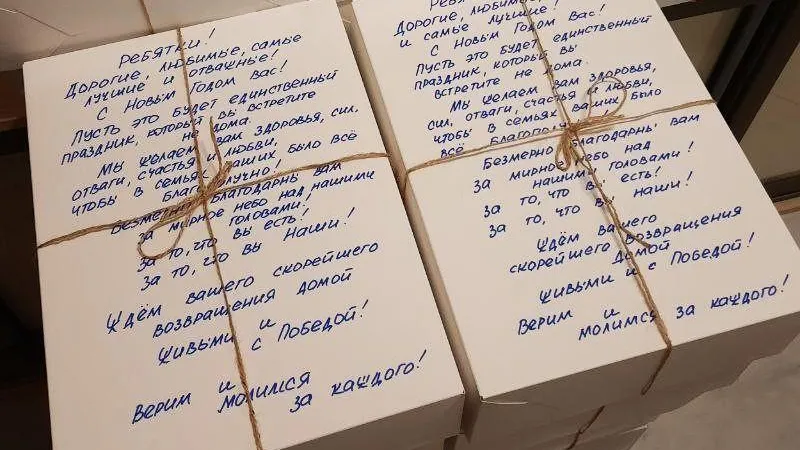 Ребятки!
Дорогие, любимые, самые
лучшие и отважные!
С Новым Годом Вас!
Пусть это будет единственный
праздник, который вы встретите
не дома.
Мы желаем вам здоровья, сил,
отваги, счастья и любви,
чтобы в семьях ваших было всё
благополучно!
Безмерно благодарны вам
за мирное небо над нашими
головами!
За то, что вы есть!
За то, что вы наши!
Ждём вашего скорейшего
возвращения домой
живыми и с Победой!
Верим и
молимся за каждого!
Ребятки!
Дорогие, любимые
и самые лучшие!
С Новым Годом Вас!
Пусть это будет единственный
праздник, который вы
встретите не дома.
Мы желаем вам здоровья,
сил, отваги, счастья и любви,
чтобы в семьях ваших было
всё благопо
Безмерно благодарны вам
за мирное небо над
нашими головами!
За то, что вы есть!
За то, что вы наши!
Ждём вашего
скорейшего возвращения
домой
живыми и с Победой!
Верим и
молимся за каждого!